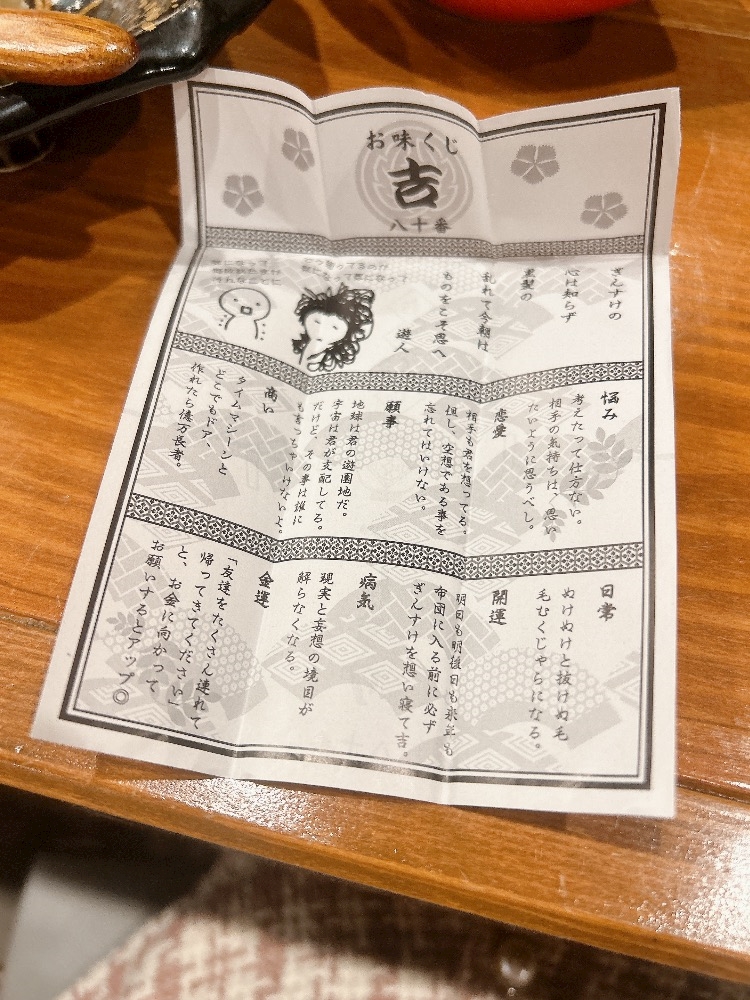 お味くじ
吉
八十番
ぎんすけの
心は知らず
黒髪の
乱れて今朝は
ものをこそ思へ
遊人
悩み
考えたって仕方ない。
相手の気持ちは、思い
たいように思うべし。
恋愛
相手も君を想ってる。
但し、空想である事を
忘れてはいけない。
願事
地球は君の遊園地だ。
宇宙は君が支配してる。
だけど、その事は誰に
も言っちゃいけないよ。
商い
タイムマシーンと
どこでもドア、
作れたら億万長者。
日常
ぬけぬけと抜けぬ毛
毛むくじゃらになる。
開運
明日も明後日も来年も
布団に入る前に必ず
ぎんすけを想い寝て吉。
病気
現実と妄想の境目が
解らなくなる。
金運
「友達をたくさん連れて
帰ってきてください」
と、お金に向かって
お願いするとアップ◎